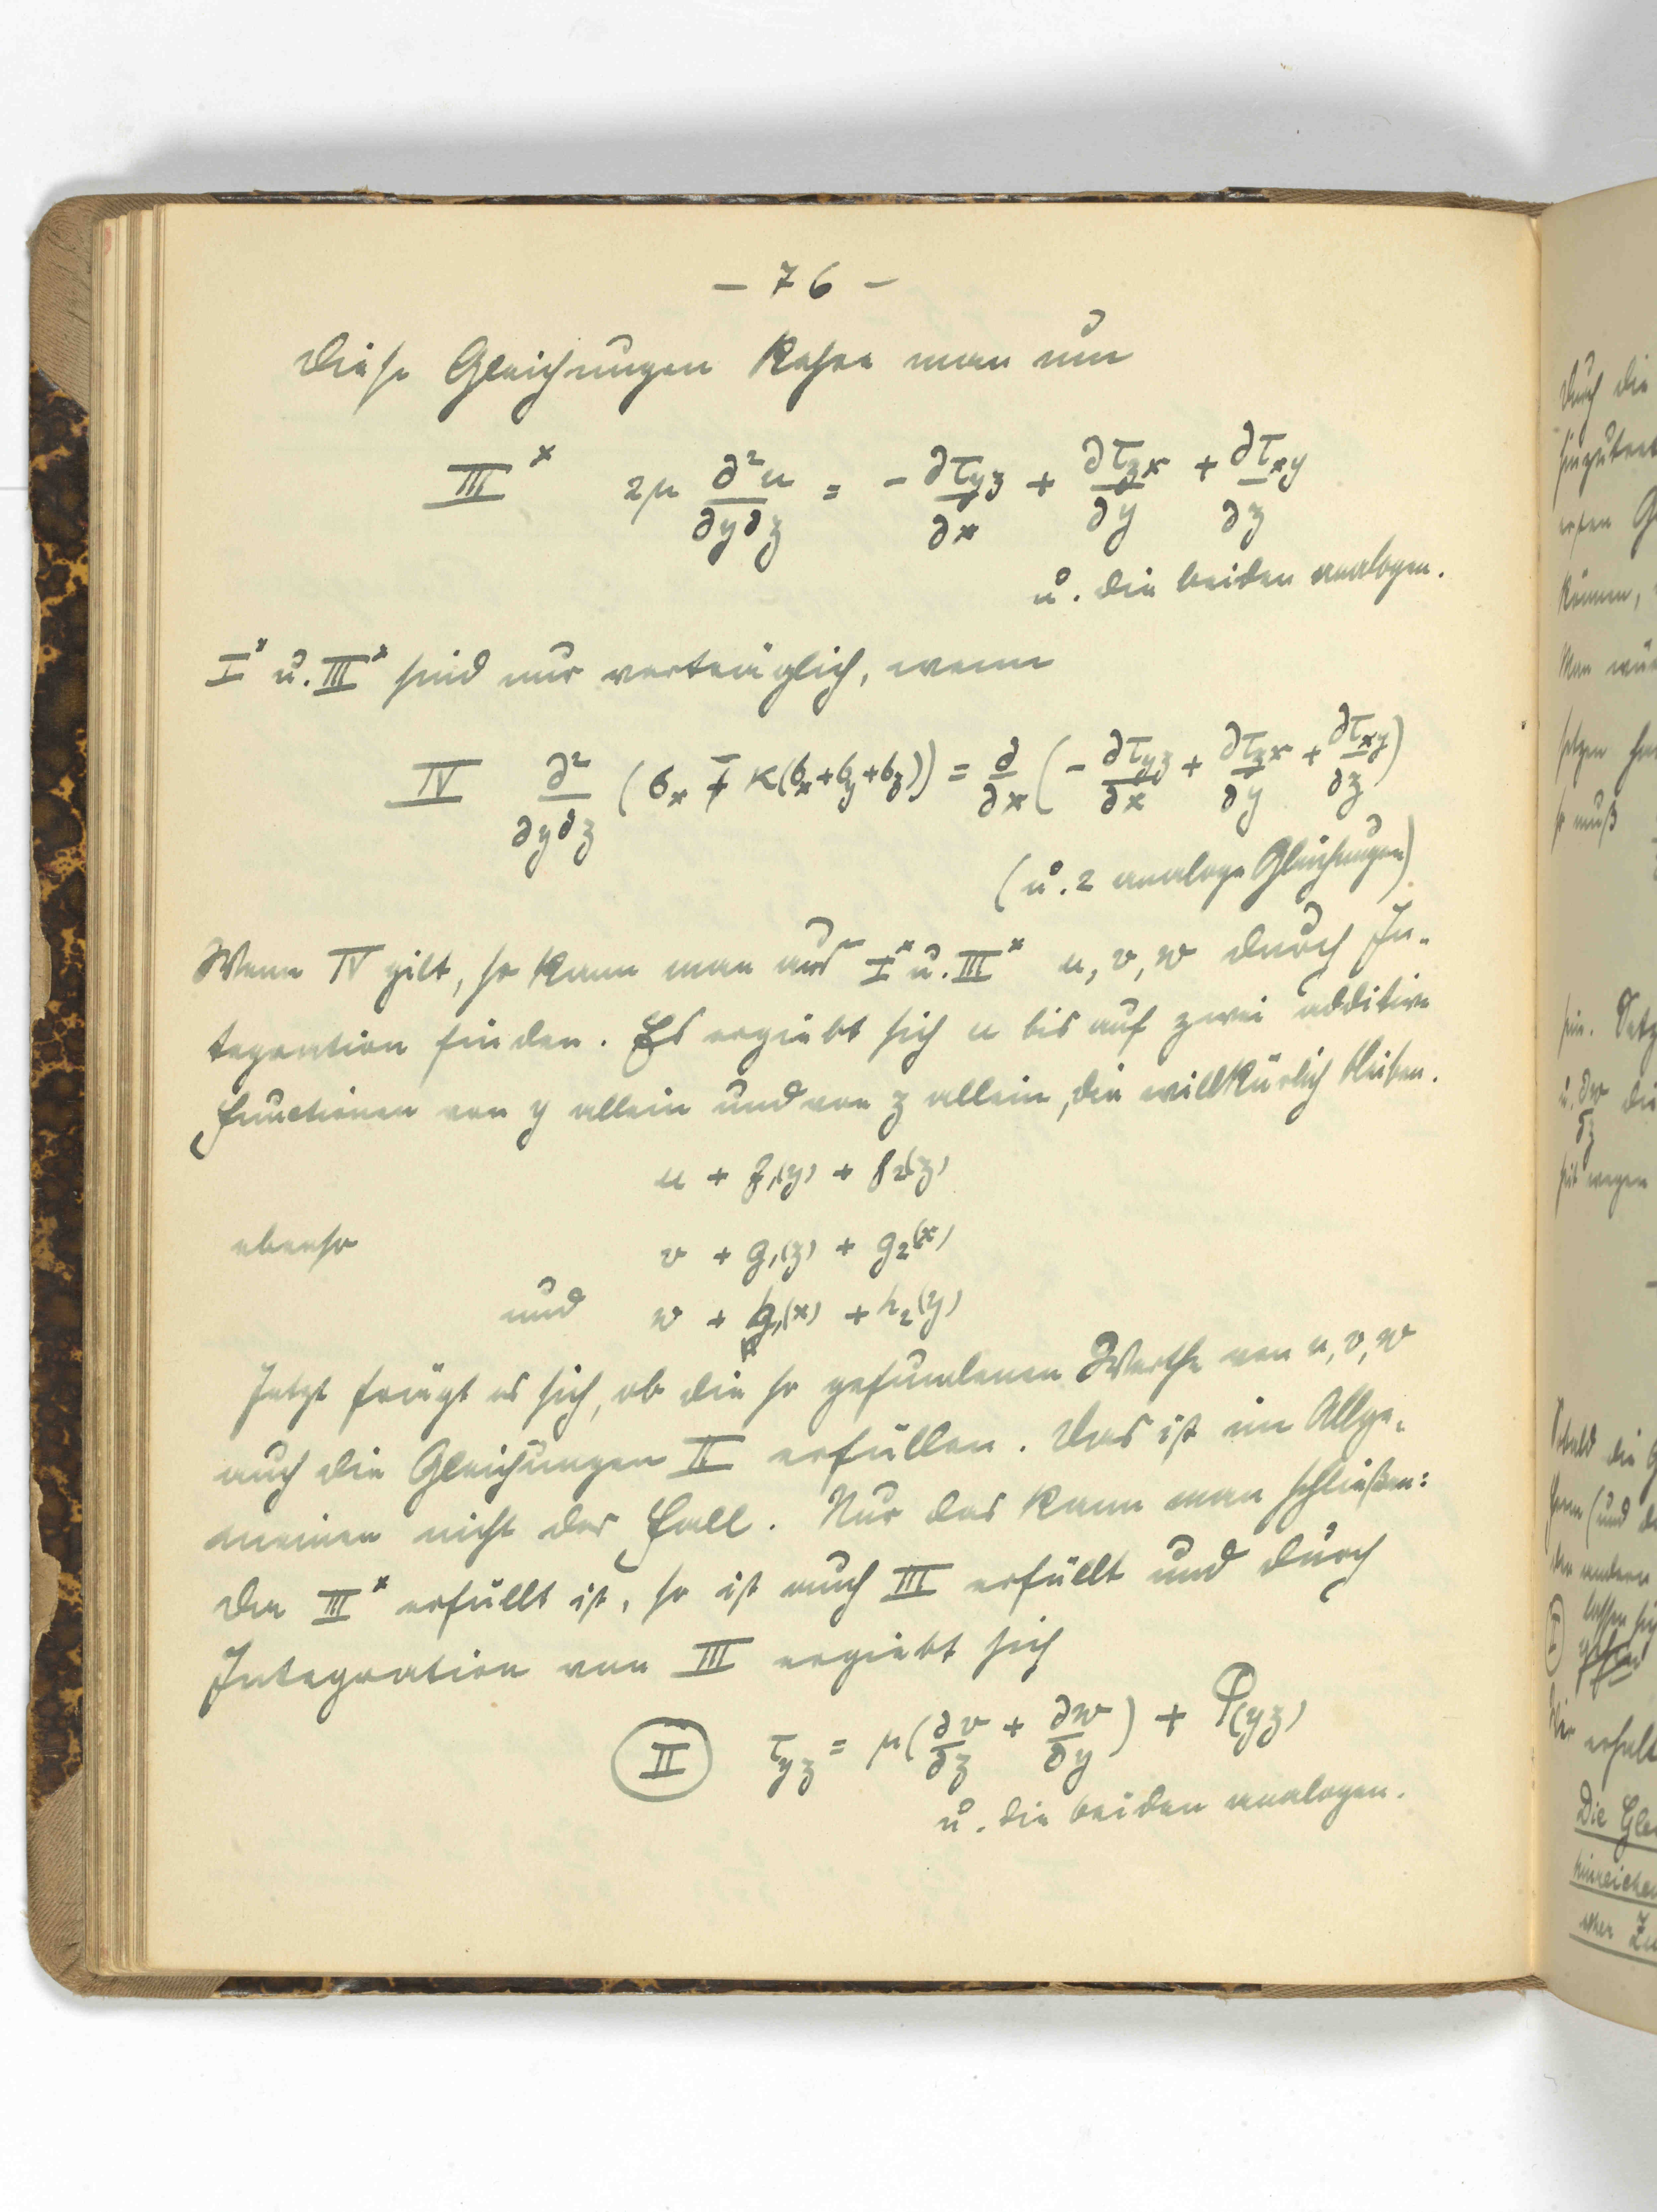 – 76 –
Diese Gleichungen kehre man um
III* 2μ ∂²u/∂y∂z = – ∂τyz/∂x + ∂τzx/∂y + ∂τxy/∂z
u. die beiden analogen.
I* u. III* sind nur verträglich, wenn
IV ∂²/∂y∂z (σx – κ(σx+σy+σz)) = ∂/∂x (– ∂τyz/∂x + ∂τzx/∂y + ∂τxy/∂z)
(u. 2 analoge Gleichungen)
Wenn IV gilt, so kann man aus I* u. III* u, v, w durch In-
tegration finden. Es ergiebt sich u bis auf zwei additive
Functionen von y allein und von z allein, die willkürlich bleiben.
u + f₁(y) + f₂(z)
ebenso v + g₁(z) + g₂(x)
und w + h₁(x) + h₂(y)
Jetzt frägt es sich, ob die so gefundenen Werthe von u, v, w
auch die Gleichungen II erfüllen. Das ist im Allge-
meinen nicht der Fall. Nur das kann man schließen:
da III* erfüllt ist, so ist auch III erfüllt und durch
Integration von III ergiebt sich
II τyz = μ(∂v/∂z + ∂w/∂y) + φ(yz)
u. die beiden analogen.
Durch die
können,
so muß
sein. Setz
u. ∂w/∂z die
Sobald die G
(und d
der andern
lassen sich
Wir erhalt
Die Glei
hinreichen